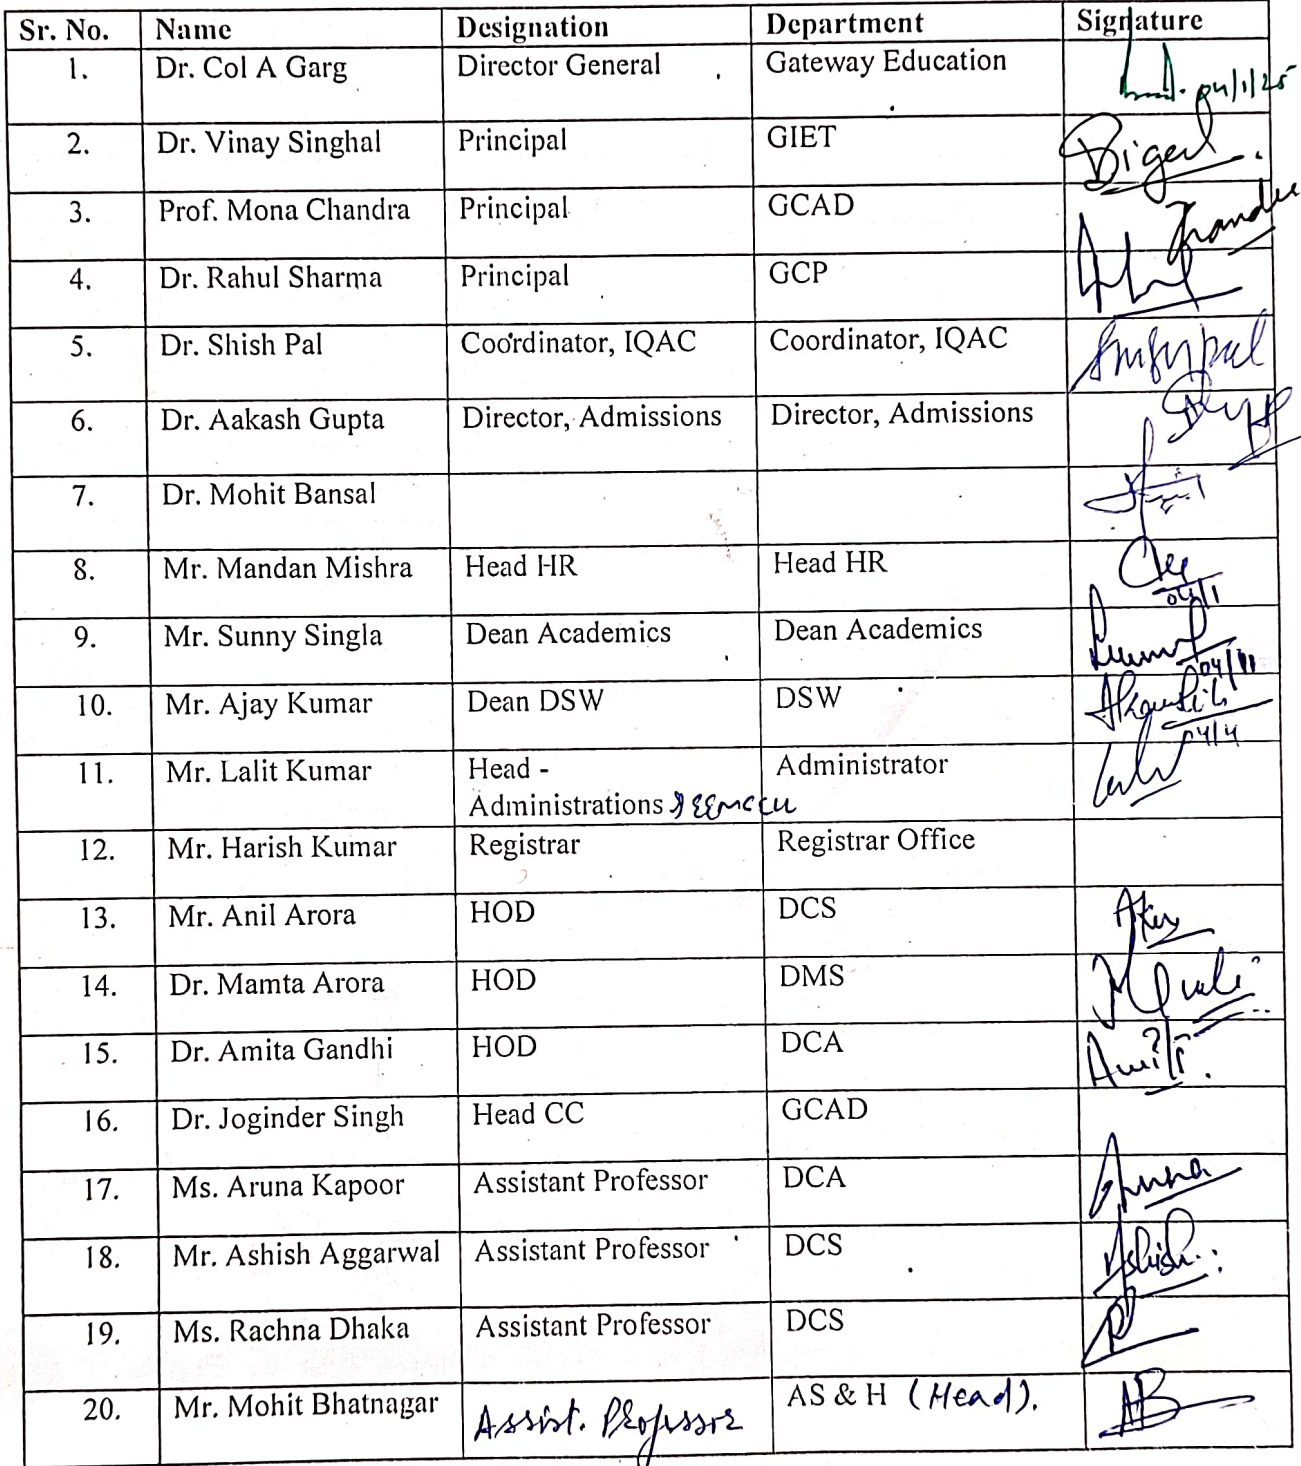 Sr. No. Name Designation Department Signature
1. Dr. Col A Garg Director General Gateway Education 04/1/25
2. Dr. Vinay Singhal Principal GIET
3. Prof. Mona Chandra Principal GCAD Chandra
4. Dr. Rahul Sharma Principal GCP
5. Dr. Shish Pal Coordinator, IQAC Coordinator, IQAC
6. Dr. Aakash Gupta Director, Admissions Director, Admissions
7. Dr. Mohit Bansal
8. Mr. Mandan Mishra Head HR Head HR 04/1
9. Mr. Sunny Singla Dean Academics Dean Academics
10. Mr. Ajay Kumar Dean DSW DSW
11. Mr. Lalit Kumar Head - Administrator
Administrations
12. Mr. Harish Kumar Registrar Registrar Office
13. Mr. Anil Arora HOD DCS
14. Dr. Mamta Arora HOD DMS
15. Dr. Amita Gandhi HOD DCA
16. Dr. Joginder Singh Head CC GCAD
17. Ms. Aruna Kapoor Assistant Professor DCA Aruna
18. Mr. Ashish Aggarwal Assistant Professor DCS Ashish
19. Ms. Rachna Dhaka Assistant Professor DCS
20. Mr. Mohit Bhatnagar Assist. Professor AS & H (Head).